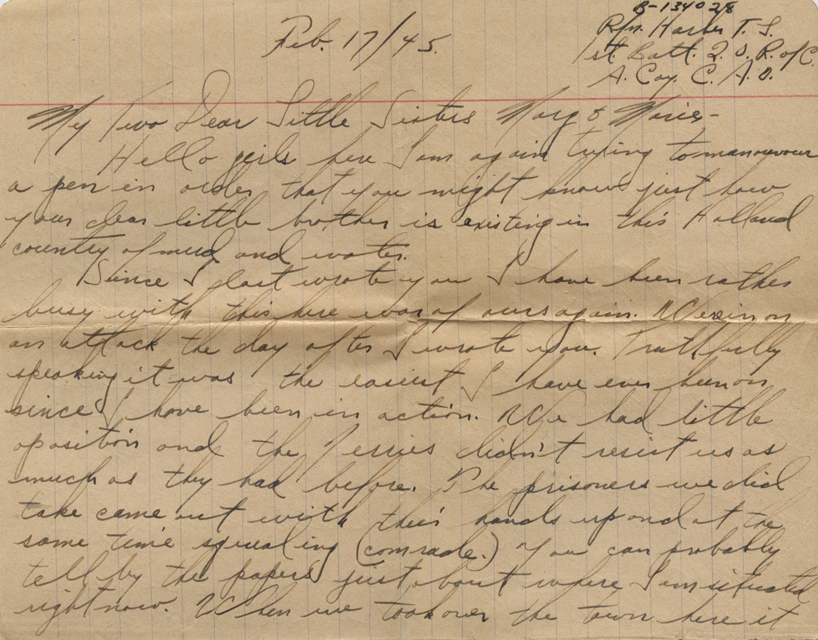 B-134028
Feb. 17/45.
Rfn. Harber T. S.
1st Batt. Q. O. R. of C.
A. Coy. C. A. O.
My Two Dear Little Sisters Marg & Marie-
Hello girls here I am again trying to manouvour
a pen in order that you might know just how
your dear little brother is existing in this Holland
country of mud and water.
Since I last wrote you I have been rather
busy with this here war of ours again. We were in on
an attack the day after I wrote you. Truthfully
speaking it was the easiest I have ever been on
since I have been in action. We had little
oposition and the Jerries didn't resist us as
much as they had before. The prisoners we did
take came out with their hands up and at the
same time squealing (comrade.) You can probably
tell by the papers just about where I am situated
right now. When we took over the town here it